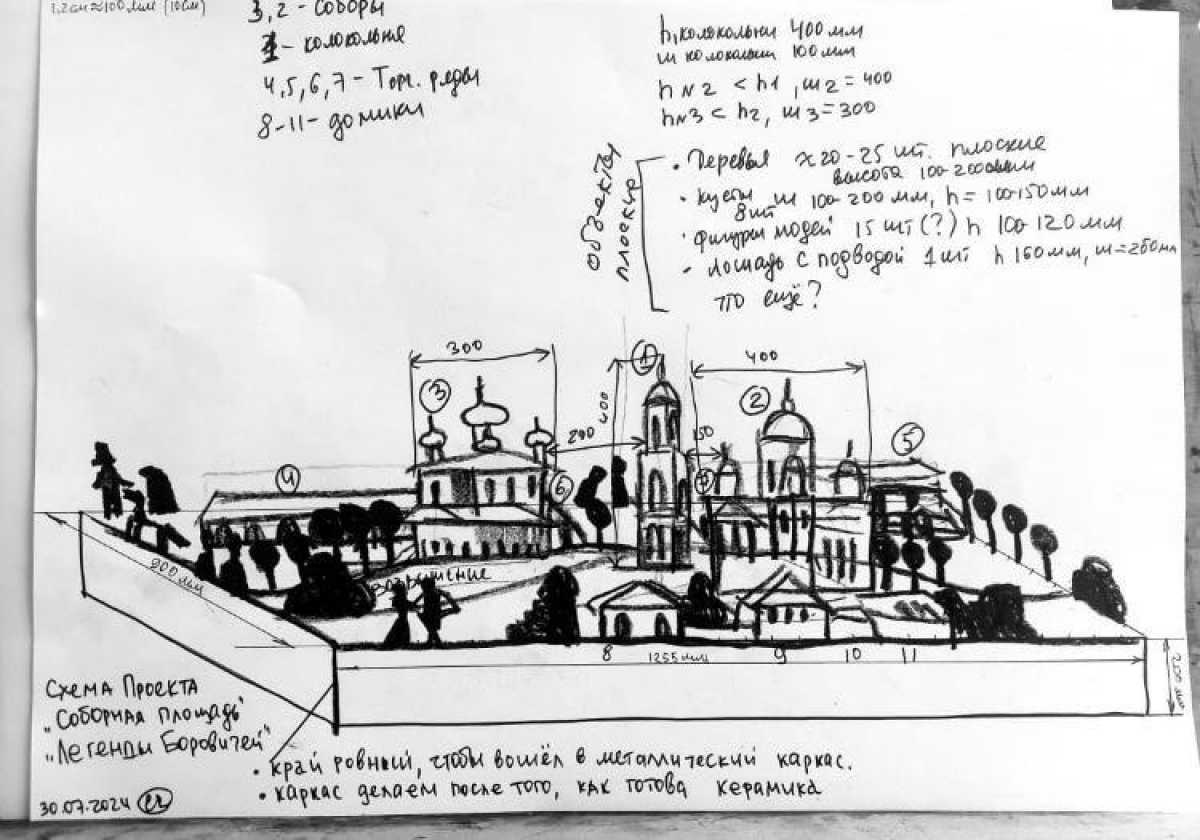 1,2 см ≈ 100 мм (10см)
3,2 - Соборы
1 - колокольня
4,5,6,7 - Торг. ряды
8-11 - домики
h, колокольни 400 мм
ш колокольни 100 мм
h N2 < h1, ш2 = 400
h N3 < h2, ш3 = 300
объекты
плоские
• Деревья ≈ 20-25 шт. плоские
высота 100-200 мм
• кусты ш 100-200 мм, h = 100-150 мм
8 шт
• фигуры людей 15 шт (?) h 100-120 мм
• лошадь с подводой 1 шт h 160 мм, ш = 260 мм
что ещё?
300
1
400
3
400
2
200
150
5
4
6
7
900 мм
возвышение
8
1255 мм
9
10
11
200 мм
Схема Проекта
"Соборная площадь"
"Легенды Боровичей"
• край ровный, чтобы вошёл в металлический каркас.
• каркас делаем после того, как готова керамика
30.07.2024